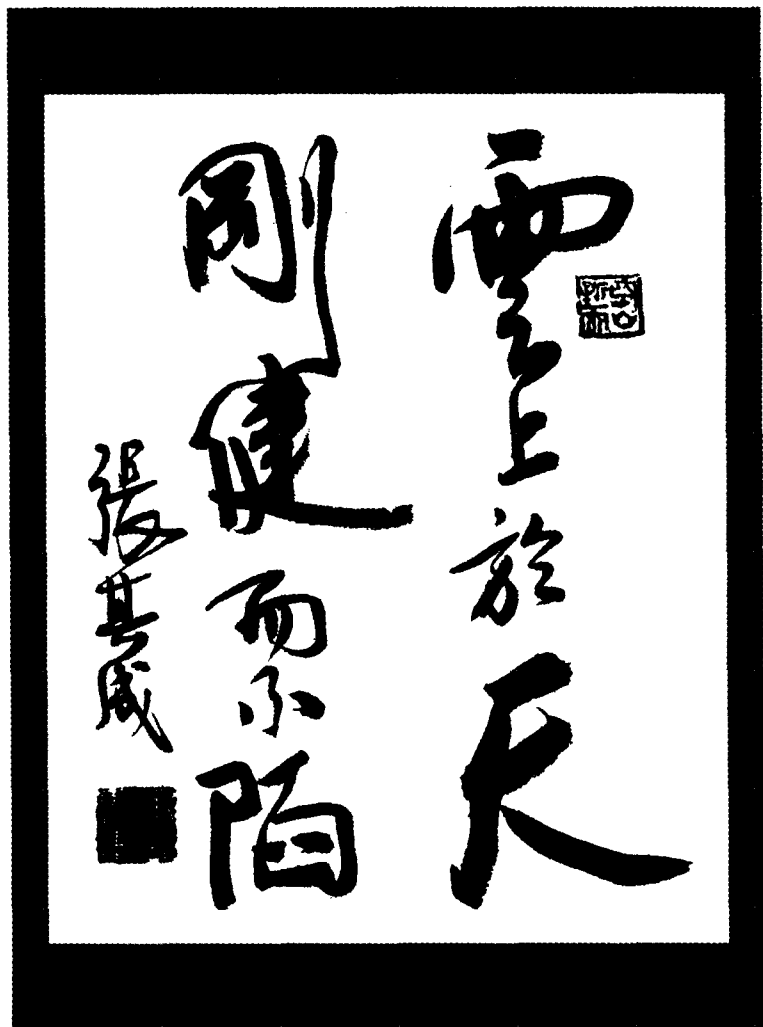 雲上於天
剛健而不陷
張其成